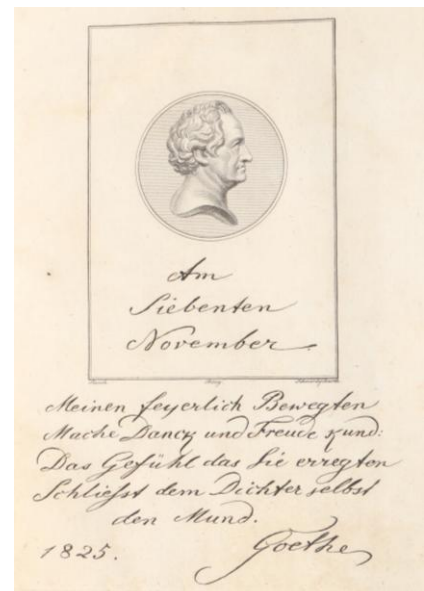 Am
Siebenten
November.
Meinen feyerlich Bewegten
Mache Danck und Freude kund:
Das Gefühl das Sie erregten
Schliefst dem Dichter selbst
den Mund.
1825. Goethe